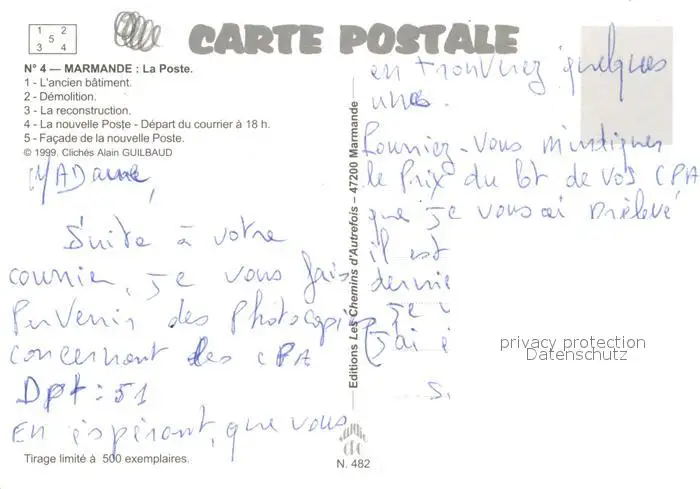 1 2
5
3 4
CARTE POSTALE
N° 4 — MARMANDE : La Poste.
1 - L'ancien bâtiment.
2 - Démolition.
3 - La reconstruction.
4 - La nouvelle Poste - Départ du courrier à 18 h.
5 - Façade de la nouvelle Poste.
© 1999. Clichés Alain GUILBAUD
MADame,
Suite à votre
courrier, je vous fais
Parvenir des Photocopies
concernant des CPA
Dpt : 51
En espérant, que vous
Tirage limité à 500 exemplaires.
Editions Les Chemins d'Autrefois – 47200 Marmande
N. 482
en trouverez quelques
unes.
Pourriez-vous m'indiquer
le Prix du lot de vos CPA
que je vous ai prélevé
il est
dernie
je v
(j'ai
S.
privacy protection
Datenschutz